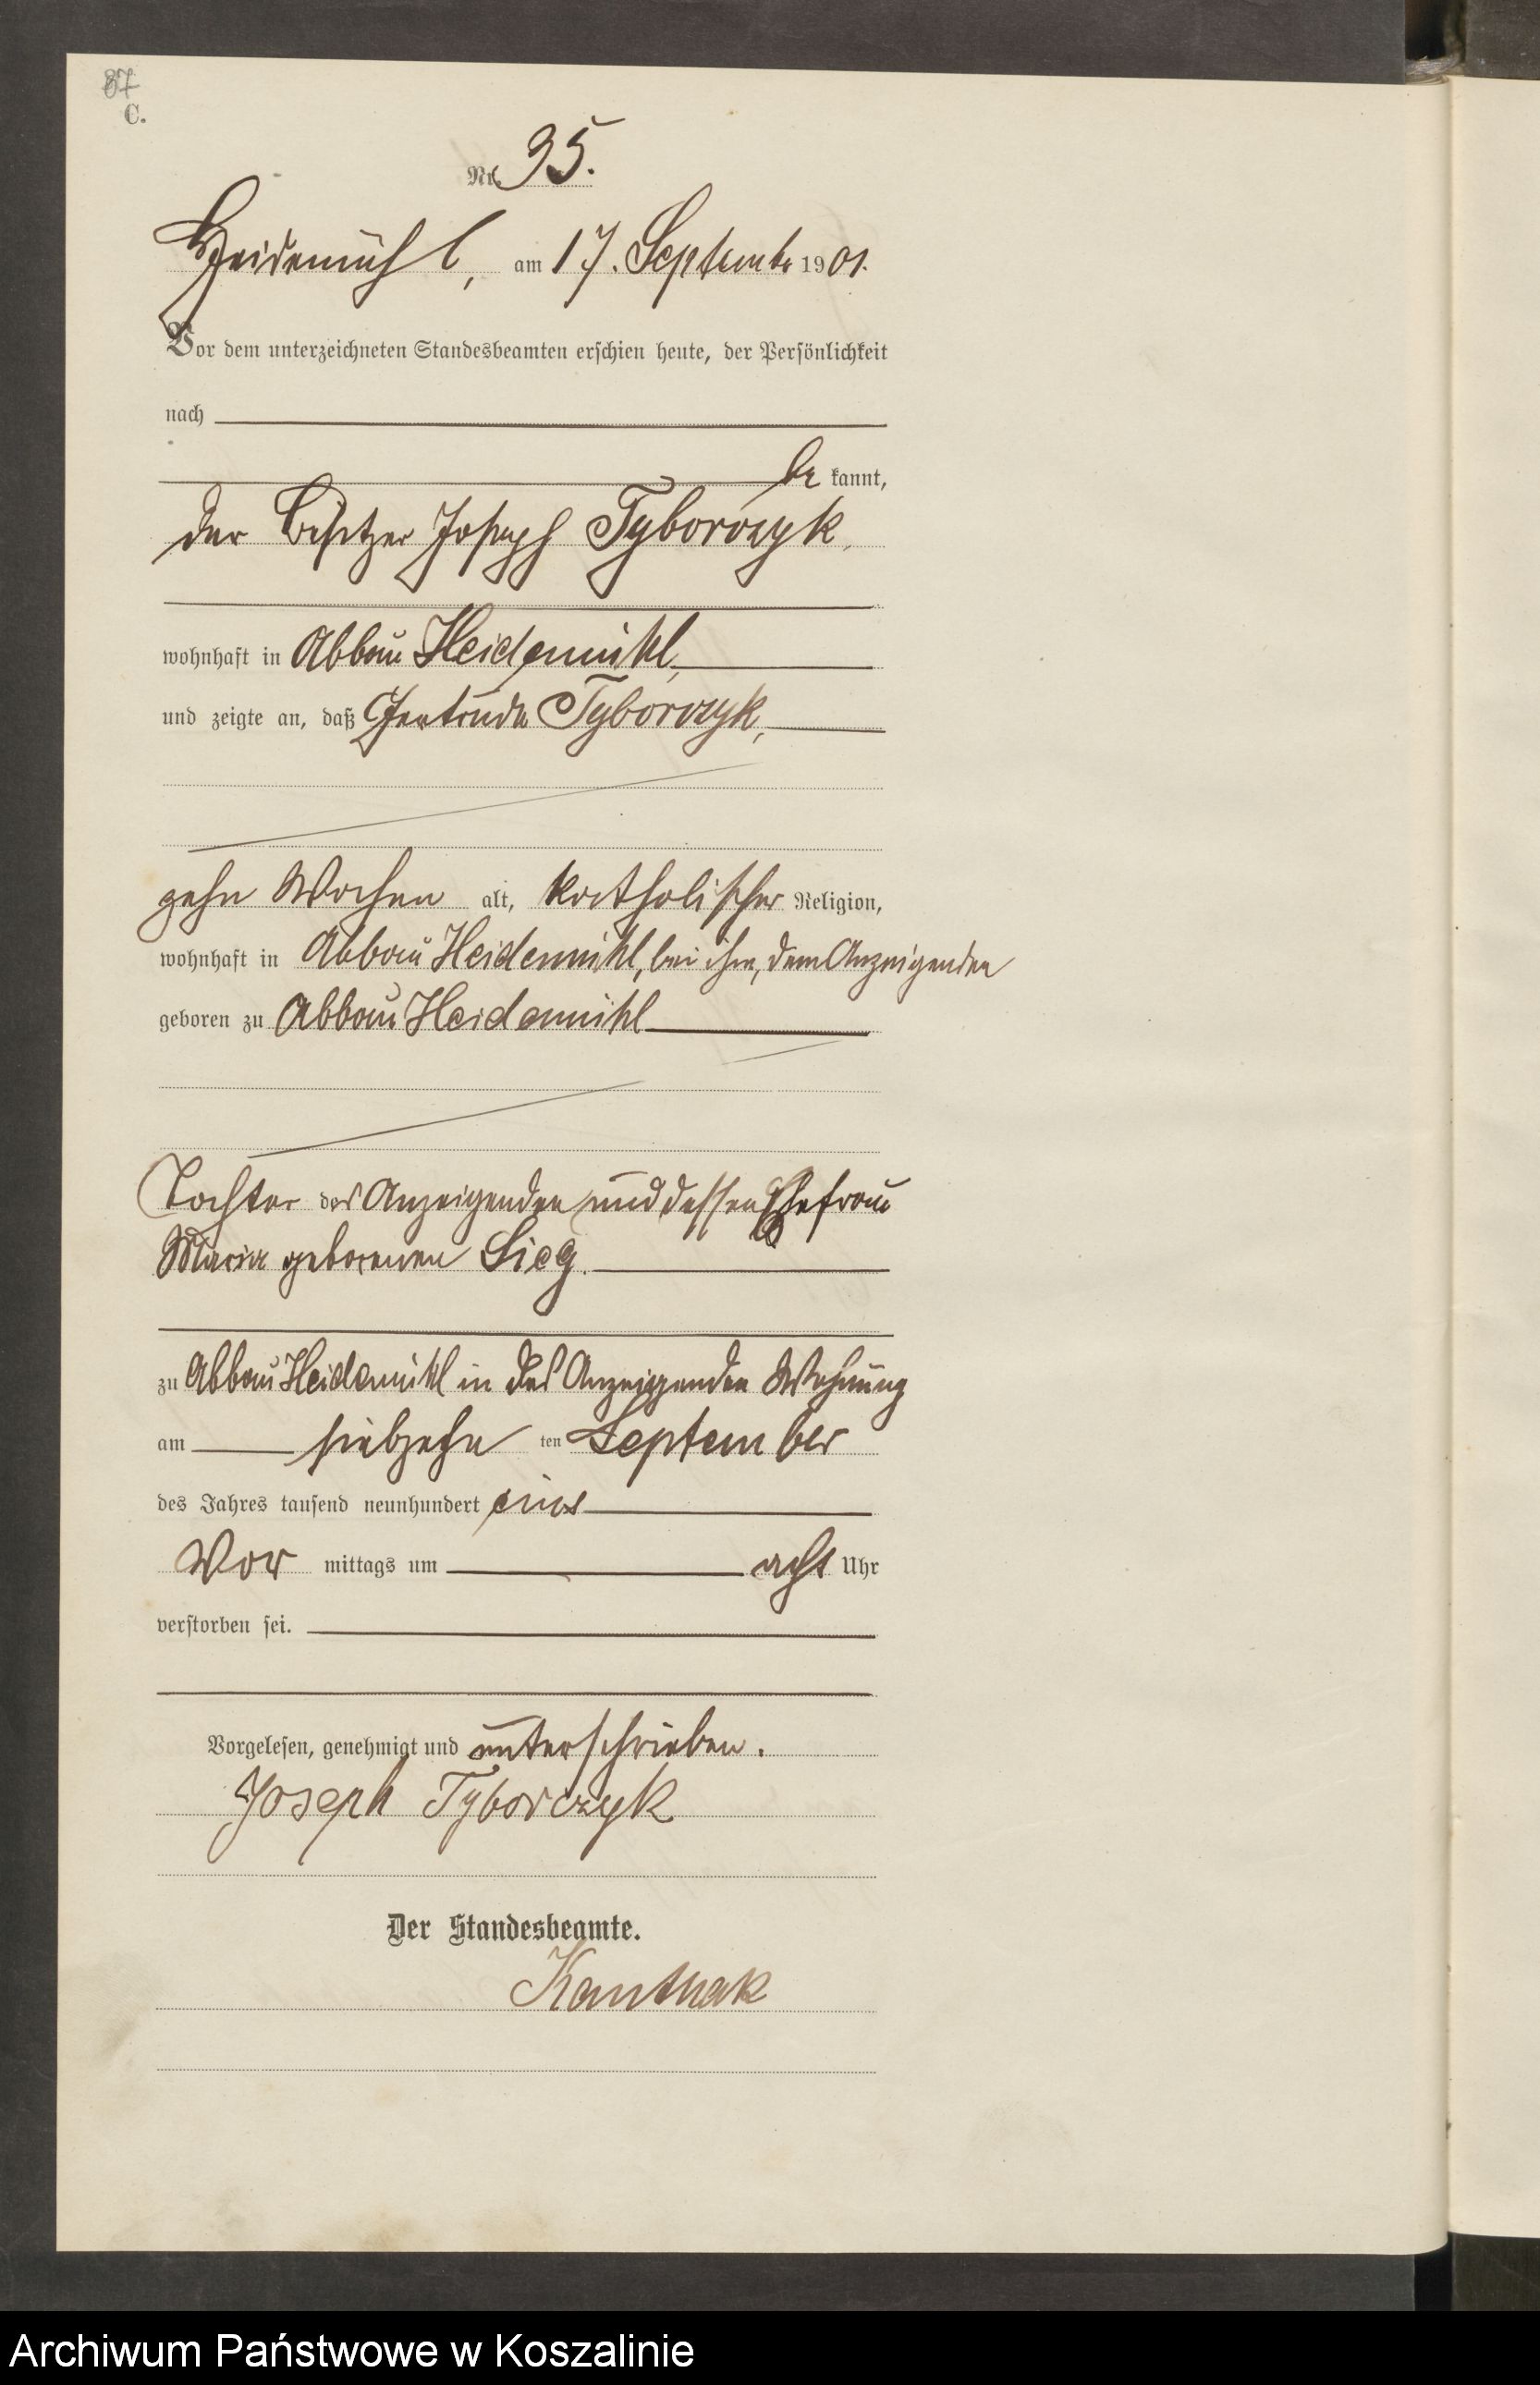 87
C.
Nr. 35.
Heidemühl, am 17. Septembr 1901.
Vor dem unterzeichneten Standesbeamten erschien heute, der Persönlichkeit
nach
be kannt,
der Besitzer Joseph Tyborczyk,
wohnhaft in Abbau Heidemühl,
und zeigte an, daß Gertrude Tyborczyk,
zehn Wochen alt, katholischer Religion,
wohnhaft in Abbau Heidemühl, bei ihm, dem Anzeigenden
geboren zu Abbau Heidemühl
Tochter des Anzeigenden und dessen Ehefrau
Maria geborenen Sieg.
zu Abbau Heidemühl in des Anzeigenden Wohnung
am siebzehn ten September
des Jahres tausend neunhundert eins
Vor mittags um acht Uhr
verstorben sei.
Vorgelesen, genehmigt und unterschrieben.
Joseph Tyborczyk
Der Standesbeamte.
Kanthak
Archiwum Państwowe w Koszalinie